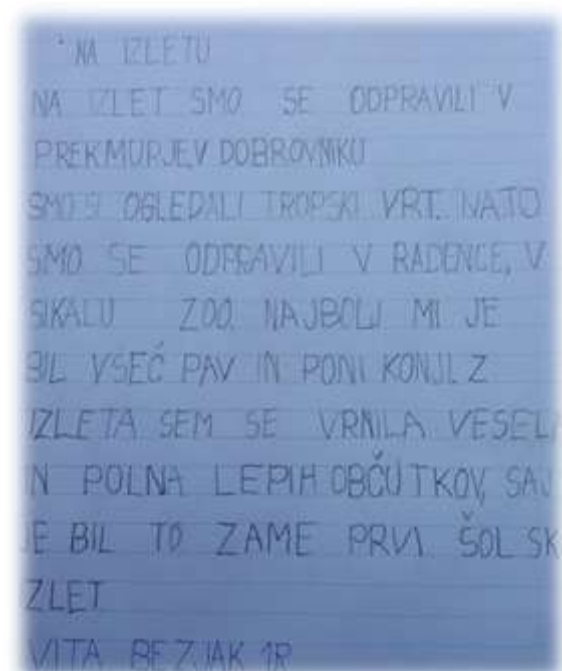 NA IZLETU
NA IZLET SMO SE ODPRAVILI V
PREKMURJE.V DOBROVNIKU
SMO SI OGLEDALI TROPSKI VRT. NATO
SMO SE ODPRAVILI V RADENCE, V
SIKALU ZOO. NAJBOLJ MI JE
BIL VSEČ PAV IN PONI KONJI. Z
IZLETA SEM SE VRNILA VESELA
IN POLNA LEPIH OBČUTKOV, SAJ
JE BIL TO ZAME PRVI ŠOLSK
IZLET
VITA BEZJAK 1R